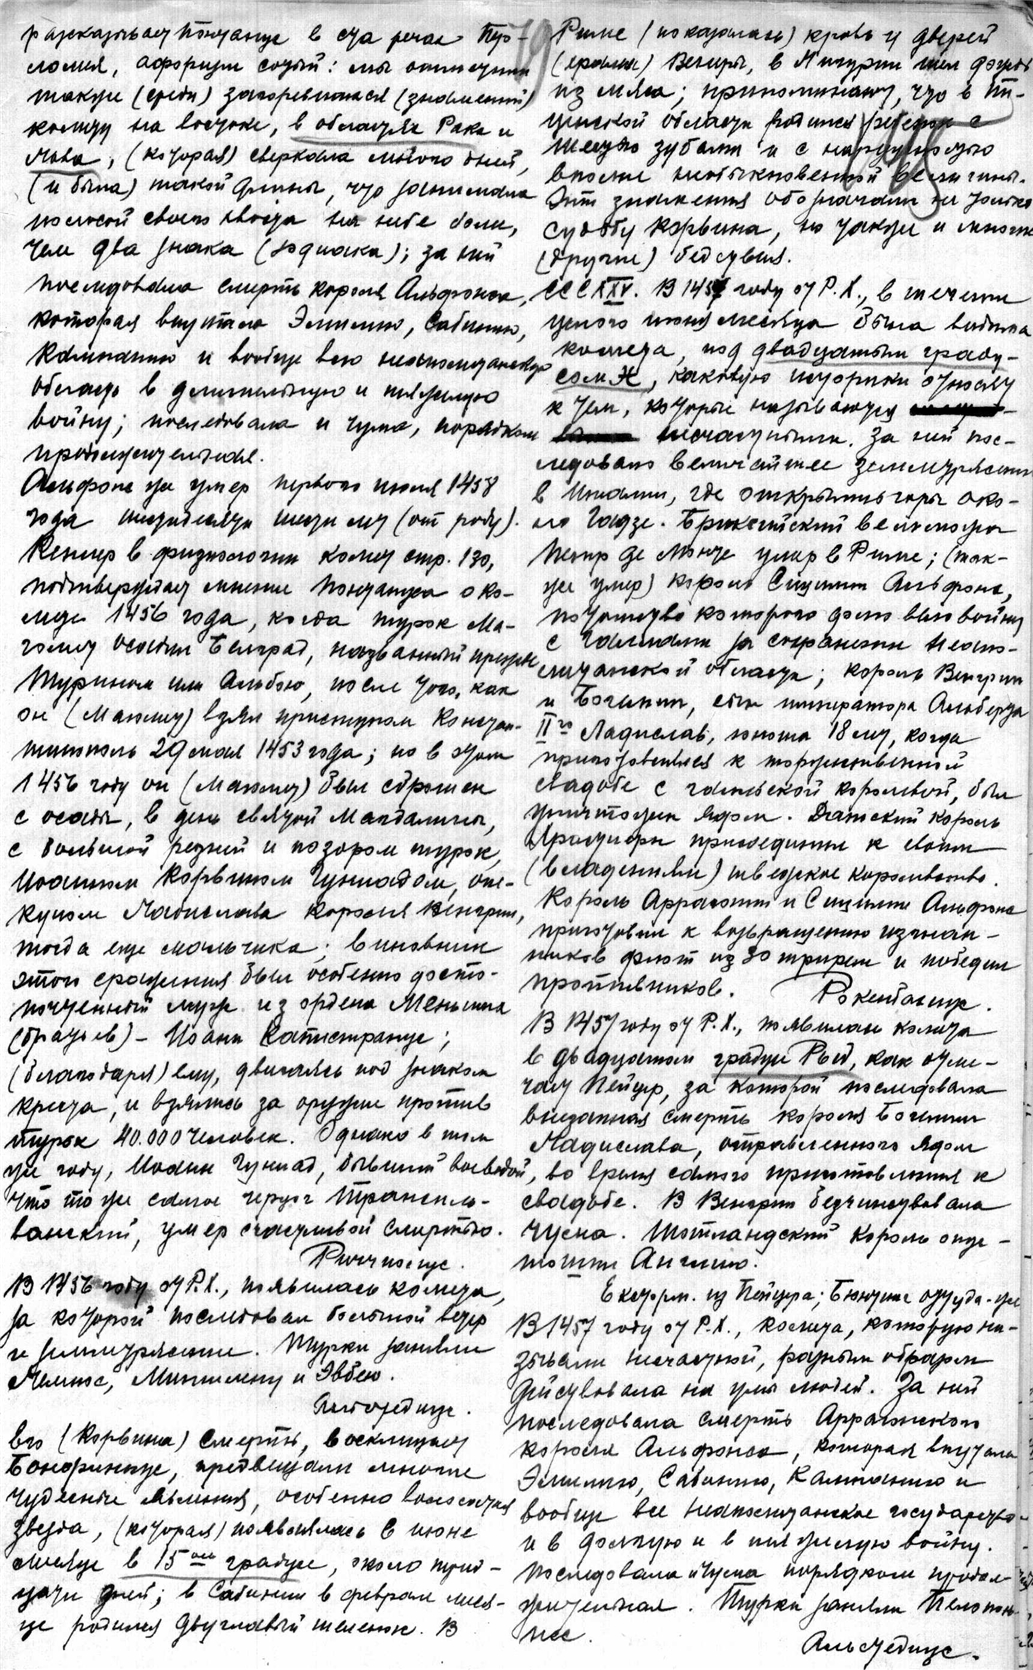 рассказывает Понтанус в ста речах Пто-
ломея, афоризм сотый: мы
также (среди) загоревшаяся (знамений)
комету на востоке, в областях Рака и
Льва, (которая) сверкала много дней,
(и была) такой длины, что занимала
полосой своего хвоста на небе более,
чем два знака (зодиака); за ней
последовала смерть короля Альфонса,
которая впутала Эмилию, Сабинию,
Кампанию и вообще всю неаполитанскую
область в длительную и тяжелую
войну; последовала и чума, порядком
продолжительная.
Альфонс же умер первого июля 1458
года шестидесяти шести лет (от роду).
Кеплер в физиологии комет стр. 130,
подтверждает мнение Понтануса о ко-
мете 1456 года, когда турок Ма-
гомет осадил Белград, названный прежде
Турином или Альбою, после того, как
он (Магомет) взял приступом Констан-
тинополь 29 мая 1453 года; но в этом
1456 году он (Магомет) был сброшен
с осады, в день святой Магдалины,
с большой резней и позором турок,
Иоанном Корвином Гуниадом, опе-
куном Ладислава короля Венгрии,
тогда еще мальчика; виновник
этого сражения был особенно досто-
почтенный муж из ордена Меньших
(братьев) – Иоанн Капистранус;
(благодаря) ему, двигаясь под знаком
креста, и взялись за оружие против
турок 40.000 человек. Однако в том
же году, Иоанн Гуниад, бывший воеводой,
что то же самое герцог Трансиль-
ванский, умер счастливой смертью.
Риччиолус.
В 1456 году от Р.Х., появилась комета,
за которой последовал большой ветер
и землетрясение. Турки заняли
Лемнос, Митилену и Эвбею.
Альстедиус.
Его (Корвина) смерть, восклицает
Бонфиниус, предвещали многие
чудесные явления, особенно волосатая
звезда, (которая) появлялась в июне
месяце в 15ом градусе, около трид-
цати дней; в Сабинии в феврале меся-
це родился двуглавый теленок. В
Риме (показалась) кровь из дверей
(храма) Венеры, в Лигурии шел дождь
из мяса; припоминают, что в Пи-
ценской области родился ребенок с
шестью зубами и с наружностью
вполне необыкновенной величины.
Эти знамения обозначали не только
судьбу Корвина, но также и многие
(другие) бедствия.
В 1457 году от Р.Х., в течении
целого июня месяца была видима
комета, под двадцатым граду-
сом ♓, каковую историки относят
к тем, которые называются
несчастными. За ней пос-
ледовало величайшее землетрясение
в Италии, где открылись горы око-
ло Гадзе. Брикский вельможа
Петр де Монте умер в Риме; (так-
же умер) король Сицилии Альфонс,
потомство которого долго вело войну
с Галлами за сохранение Неапо-
литанской области; король Венгрии
и Богемии, сын императора Альберта
IIго Ладислав, юноша 18 лет, когда
приготовлялся к торжественной
свадьбе с галльской королевой, был
уничтожен ядом. Датский король
присоединил к своим
(владениям) шведское королевство.
Король Аррагонии и Сицилии Альфонс
приготовил к возвращению изгнан-
ников флот из 80 трирем и победил
противников. Рокенбахиус.
В 1457 году от Р.Х., появилась комета
в двадцатом градусе Рыб, как отме-
чает Пейцер, за которой последовала
внезапная смерть короля Богемии
Ладислава, отравленного ядом
, во время самого приготовления к
свадьбе. В Венгрии бедствовала
чума. Шотландский король опус-
тошил Англию.
Екторм. из Пейцера; Бюнтинг оттуда-же
В 1457 году от Р.Х., комета, которую на-
зывали несчастной, разным образом
действовала на умы людей. За ней
последовала смерть Аррагонского
короля Альфонса, которая впутала
Эмилию, Сабинию, Кампанию и
вообще все неаполитанское государство
и в долгую и в тяжелую войну.
Последовала и чума порядком продол-
жительная. Турки заняли Пелопон-
нес.
Альстедиус.